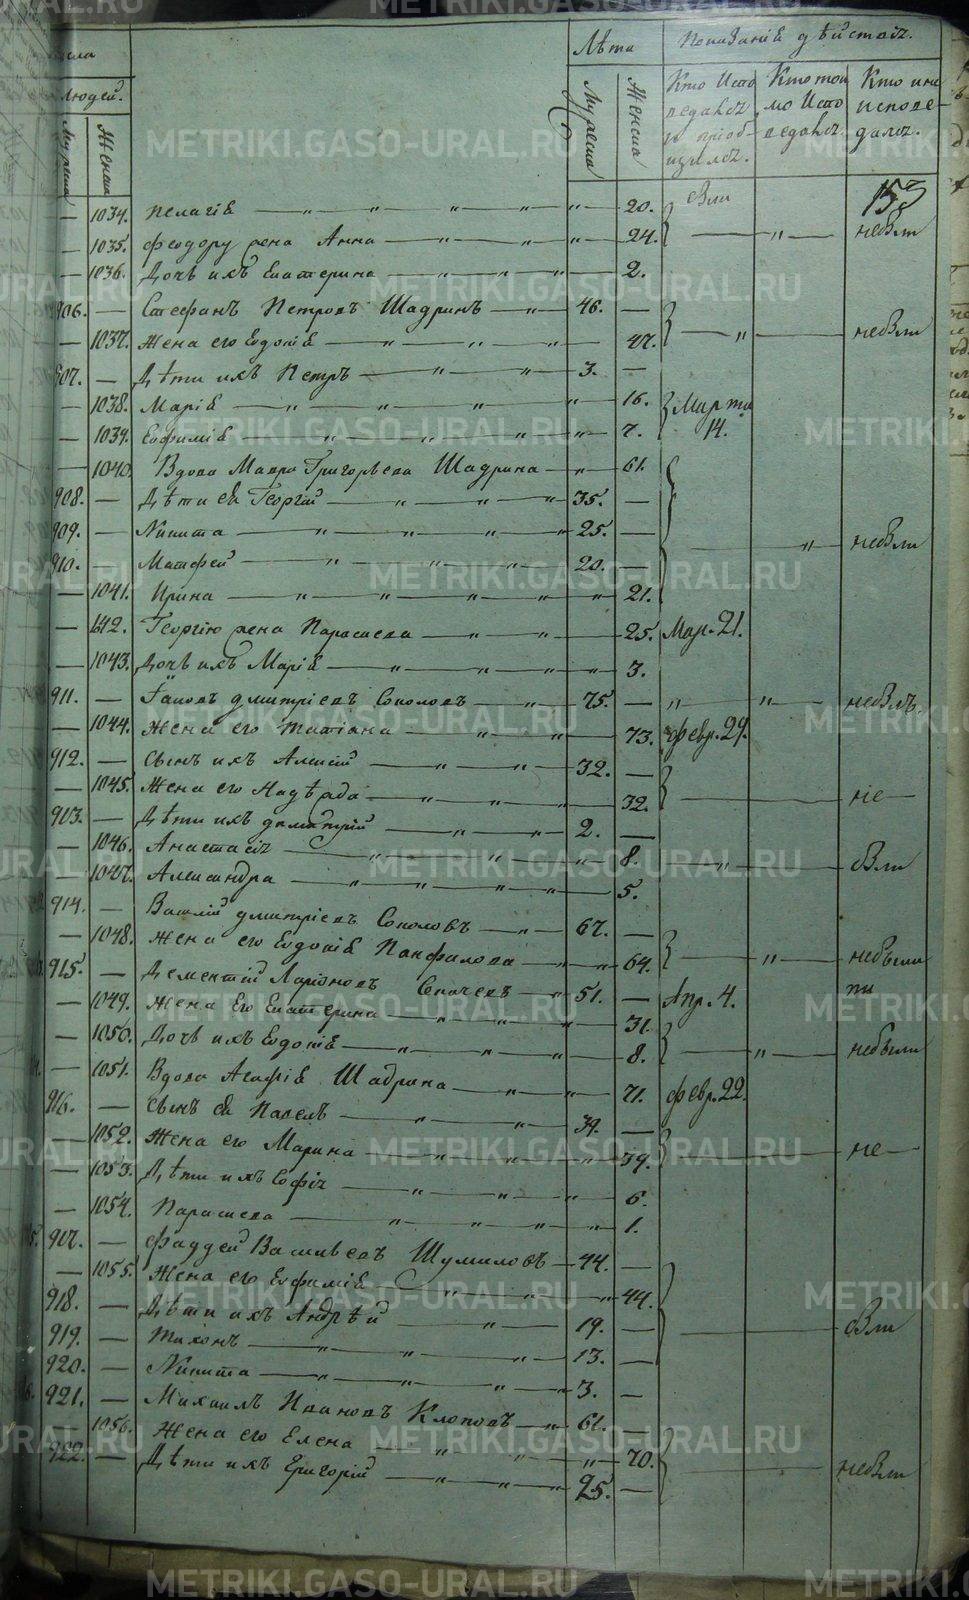 Лѣта Показаніе дѣйствіѧ.
Людей.
Мужска Женска Мужска Женска Кто испо Кто тои Кто ни
ведавсѧ мо испо исповѣ-
и пріоб- ведавсѧ. далсѧ.
щилсѧ.
153
— 1034. Пелагіѣ — 20. были
— 1035. Феодору жена Анна — 24. — небыли
— 1036. Дочь ихъ Екатерина — 2.
906. — Стефанъ Петровъ Шадринъ — 46. —
— 1037. Жена его Евдокіѣ — 47. — небыли
907. — Дѣти ихъ Петръ — 3. —
— 1038. Маріѣ — 16. Марта
— 1039. Евфиміѣ — 7. 14.
— 1040. Вдова Мавра Григорьева Шадрина — 61.
908. — Дѣти еѣ Георгій — 35. —
909. — Никита — 25. —
910. — Матфей — 20. — небыли
— 1041. Ирина — 21.
— 1042. Георгію жена Параскева — 25. Мар. 21.
— 1043. Дочь ихъ Маріѣ — 3.
911. — Іаковъ Дмитріевъ Соколовъ — 75. — небылъ.
— 1044. Жена его Татіана — 73. Февр. 29.
912. — Сынъ ихъ Алексій — 32. —
— 1045. Жена его Надѣжда — 32. — не —
903. — Дѣти ихъ Димитрій — 2. —
— 1046. Анастасіѧ — 8. — были
— 1047. Александра — 5.
914. — Василій Дмитріевъ Соколовъ — 67. —
— 1048. Жена его Евдокіѣ Панфилова — 64. — небыли
915. — Дементій Ларіоновъ — 51. — Апр. 4.
— 1049. Жена Его Екатерина — 31.
— 1050. Дочь ихъ Евдокіѣ — 8. — небыли
— 1051. Вдова Агафіѣ Шадрина — 71. Февр. 22.
916. — Сынъ еѣ Павелъ — 39. —
— 1052. Жена его Марина — 39. — не —
— 1053. Дѣти ихъ Софіѧ — 6.
— 1054. Параскева — 1.
907. — Фаддей Васильевъ Шумиловъ — 44. —
— 1055. Жена его Евфиміѣ — 44.
918. — Дѣти ихъ Андрѣй — 19. — были
919. — Тихонъ — 13. —
920. — Никита — 3. —
921. — Михаилъ Ивановъ Клоповъ — 61.
— 1056. Жена его Елена — 70.
922. — Дѣти ихъ Григорій — 25. — небыли
METRIKI.GASO-URAL.RU